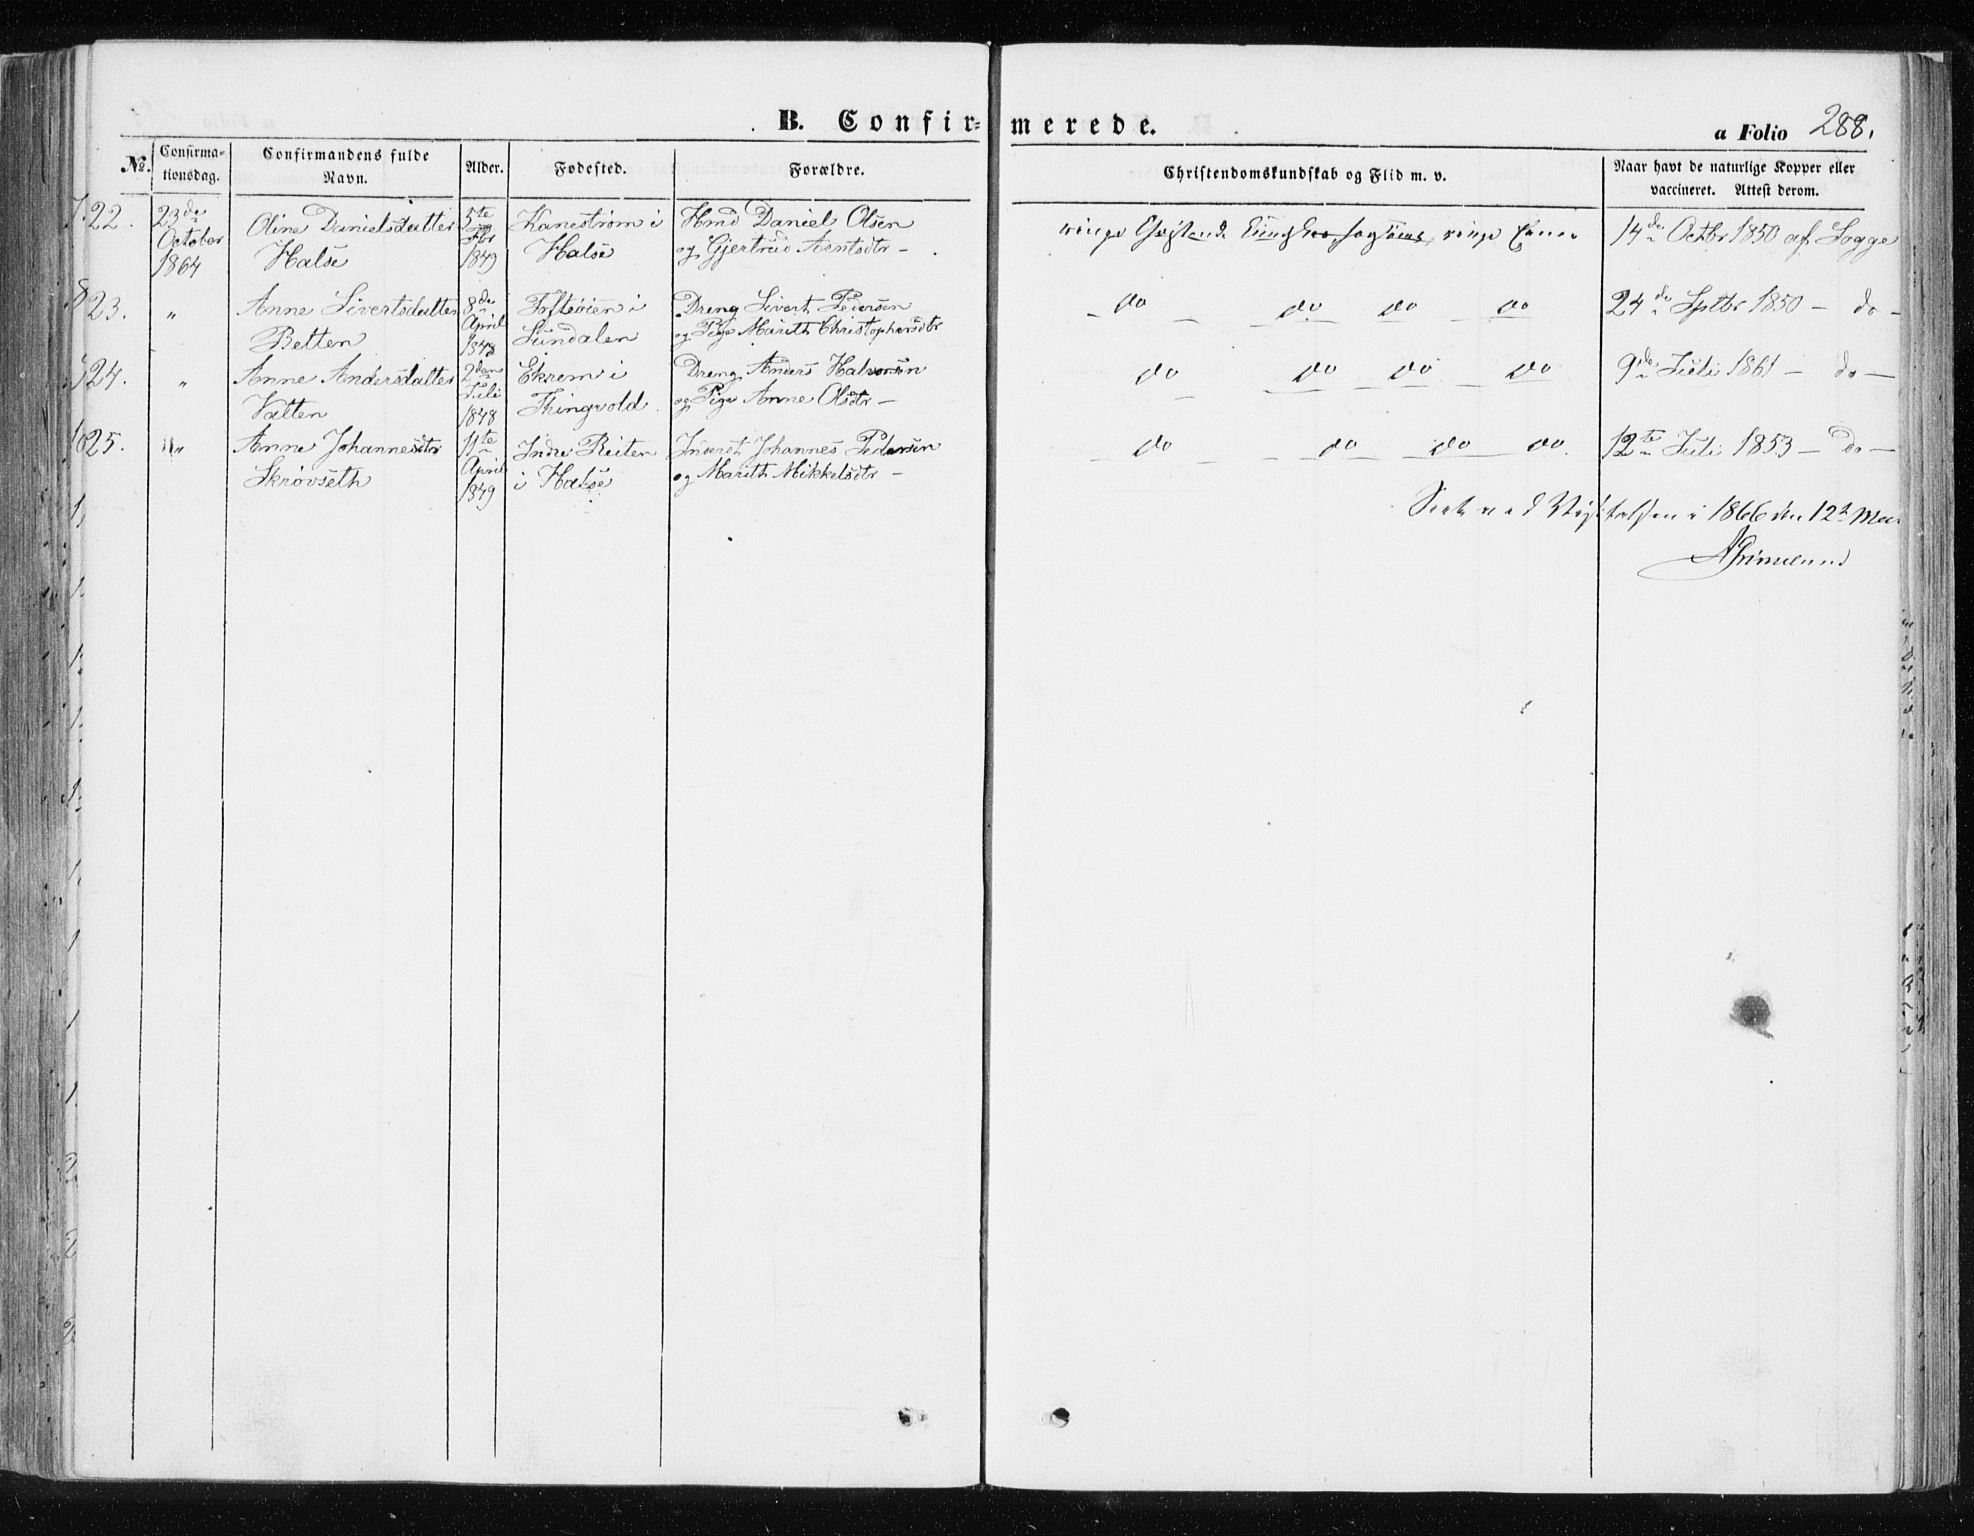 B. Confirmerede.
a Folio 288.
No. Confirmationsdag. Confirmandens fulde Navn. Alder. Fødested. Forældre. Christendomskundskab og Flid m. v. Naar havt de naturlige Kopper eller vaccineret. Attest derom.
22. 23de Oline Danielsdatter 5te Kanestrøm i Hmd Daniel Olsen ringe 14de Octbr 1850 af Logge
October Halse Halse og Gjertrud Arntsdtr -
1864 1849
23. " Anne Sivertsdatter 8de Toftøien i Dreng Sivert Pedersen do do do do 24de Sptbr 1850 - do -
Betten April Sundalen og Pige Marith Christophersdtr
1848
24. " Anne Andersdatter 2den Ekrem i Dreng Anders Halvorsen do do do do 9de Juli 1861 - do -
Valten Juli Thingvold og Pige Anne Olsdtr -
1848
25. " Anne Johannesdtr 11te Indre Reiten Inderst Johannes Pedersen do do do do 12te Juli 1853 - do -
Skrøvseth April i Halse og Marith Mikkelsdtr -
1849
Seet ved Visitatsen i 1866 den 12te
Grimelund